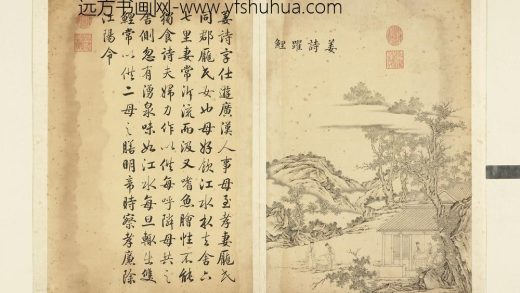 远方书画网-www.yfshuhua.com
姜詩躍鯉
姜詩字仕遊廣漢人事母至孝妻龐氏
同郡龐氏女也母好飲江水水去舍六
七里妻常泝流而汲又嗜魚膾性不能
獨食詩夫婦力作以供每呼隣母共之
舍側忽有湧泉味如江水每旦輒出雙
鯉常以供二母之膳明帝時察孝廉除
江陽令